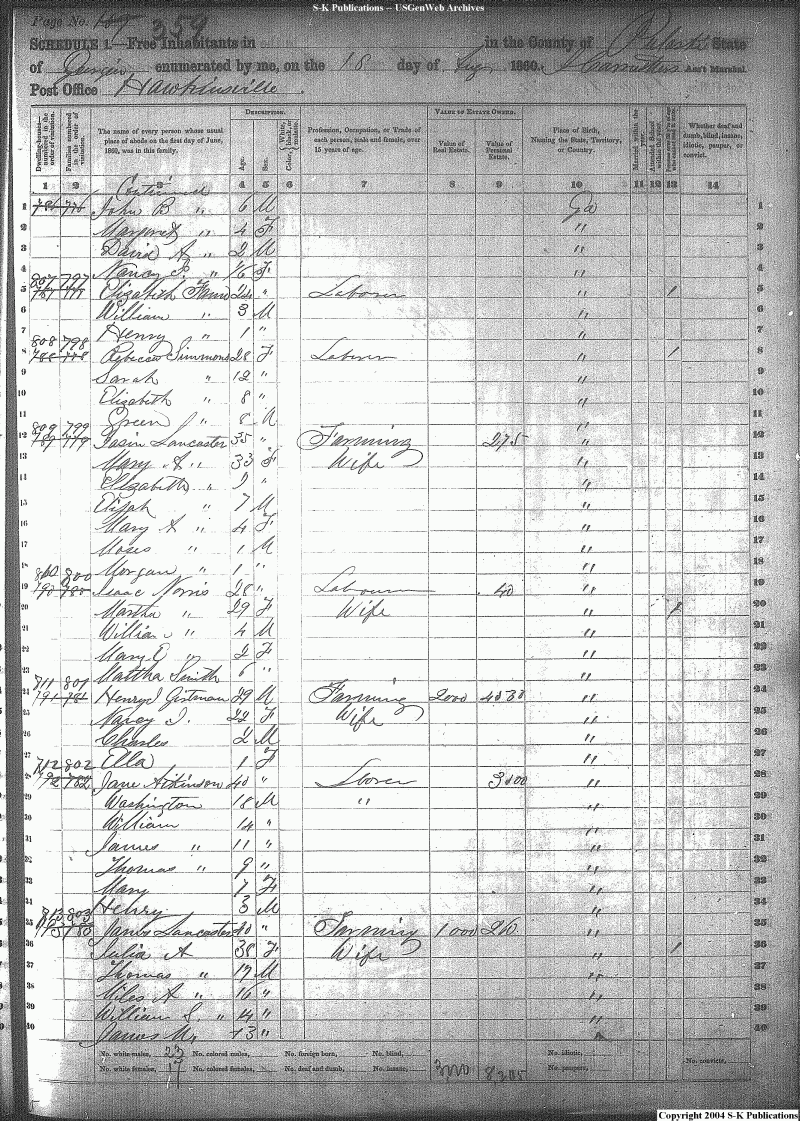 S-K Publications -- USGenWeb Archives
Page No. 359
SCHEDULE 1.—Free Inhabitants in in the County of Pulaski State
of Georgia enumerated by me, on the 18 day of Aug 1860. Ass't Marshal.
Post Office Hawkinsville.
DESCRIPTION. VALUE OF ESTATE OWNED.
Dwelling-houses—numbered in the order of visitation. Families numbered in the order of visitation. The name of every person whose usual place of abode on the first day of June, 1860, was in this family. Age. Sex. Color, White, black, or mulatto. Profession, Occupation, or Trade of each person, male and female, over 15 years of age. Value of Real Estate. Value of Personal Estate. Place of Birth, Naming the State, Territory, or Country. Married within the year. Attended School within the year. Whether deaf and dumb, blind, insane, idiotic, pauper, or convict.
1 2 3 4 5 6 7 8 9 10 11 12 13 14
Continued
1 786 776 John B " 6 M Ga 1
2 Margaret " 4 F " 2
3 David A " 2 M " 3
4 Nancy P. " F " 4
5 807 797 787 777 Elizabeth 24 " Laborer " 1 5
6 William " 3 M " 6
7 Henry " 1 " " 7
8 808 798 788 778 Rebecca Simmons 28 F Laborer " 1 8
9 Sarah " 12 " " 9
10 Elizabeth " 8 " " 10
11 Green " 8 M " 11
12 809 799 789 779 Lancaster 35 " Farming 275 " 12
13 Mary A " 33 F Wife " 13
14 Elizabeth " 9 " " 14
15 Elijah " 7 M " 15
16 Mary A " 4 F " 16
17 Moses " 1 M " 17
18 Morgan " 1 " " 18
19 810 800 790 780 Isaac Norris 28 " Labourer 40 " 19
20 Martha " 29 F Wife " 1 20
21 William " 4 M " 21
22 Mary E " 2 F " 22
23 Martha Smith 6 " " 23
24 711 801 791 781 Henry J 29 M Farming 2000 4030 " 24
25 Nancy J. 22 F Wife " 25
26 Charles 2 M " 26
27 Ella 1 F " 27
28 712 802 792 782 Jane Atkinson 40 " Laborer 3000 " 28
29 Washington 18 M " " 29
30 William 14 " " 30
31 James " 11 " " 31
32 Thomas " 9 " " 32
33 Mary 7 F " 33
34 Henry 3 M " 34
35 813 803 793 783 James Lancaster 40 " Farming 1000 " 35
36 Julia A 38 F Wife " 1 36
37 Thomas " 17 M " 37
38 Miles A " 16 " " 38
39 William S. " 14 " " 39
40 James M. 13 " " 40
No. white males, 23 No. colored males, No. foreign born, No. blind, No. idiotic, No. convicts,
No. white females, 17 No. colored females, No. deaf and dumb, No. insane, 3000 No. paupers,
Copyright 2004 S-K Publications